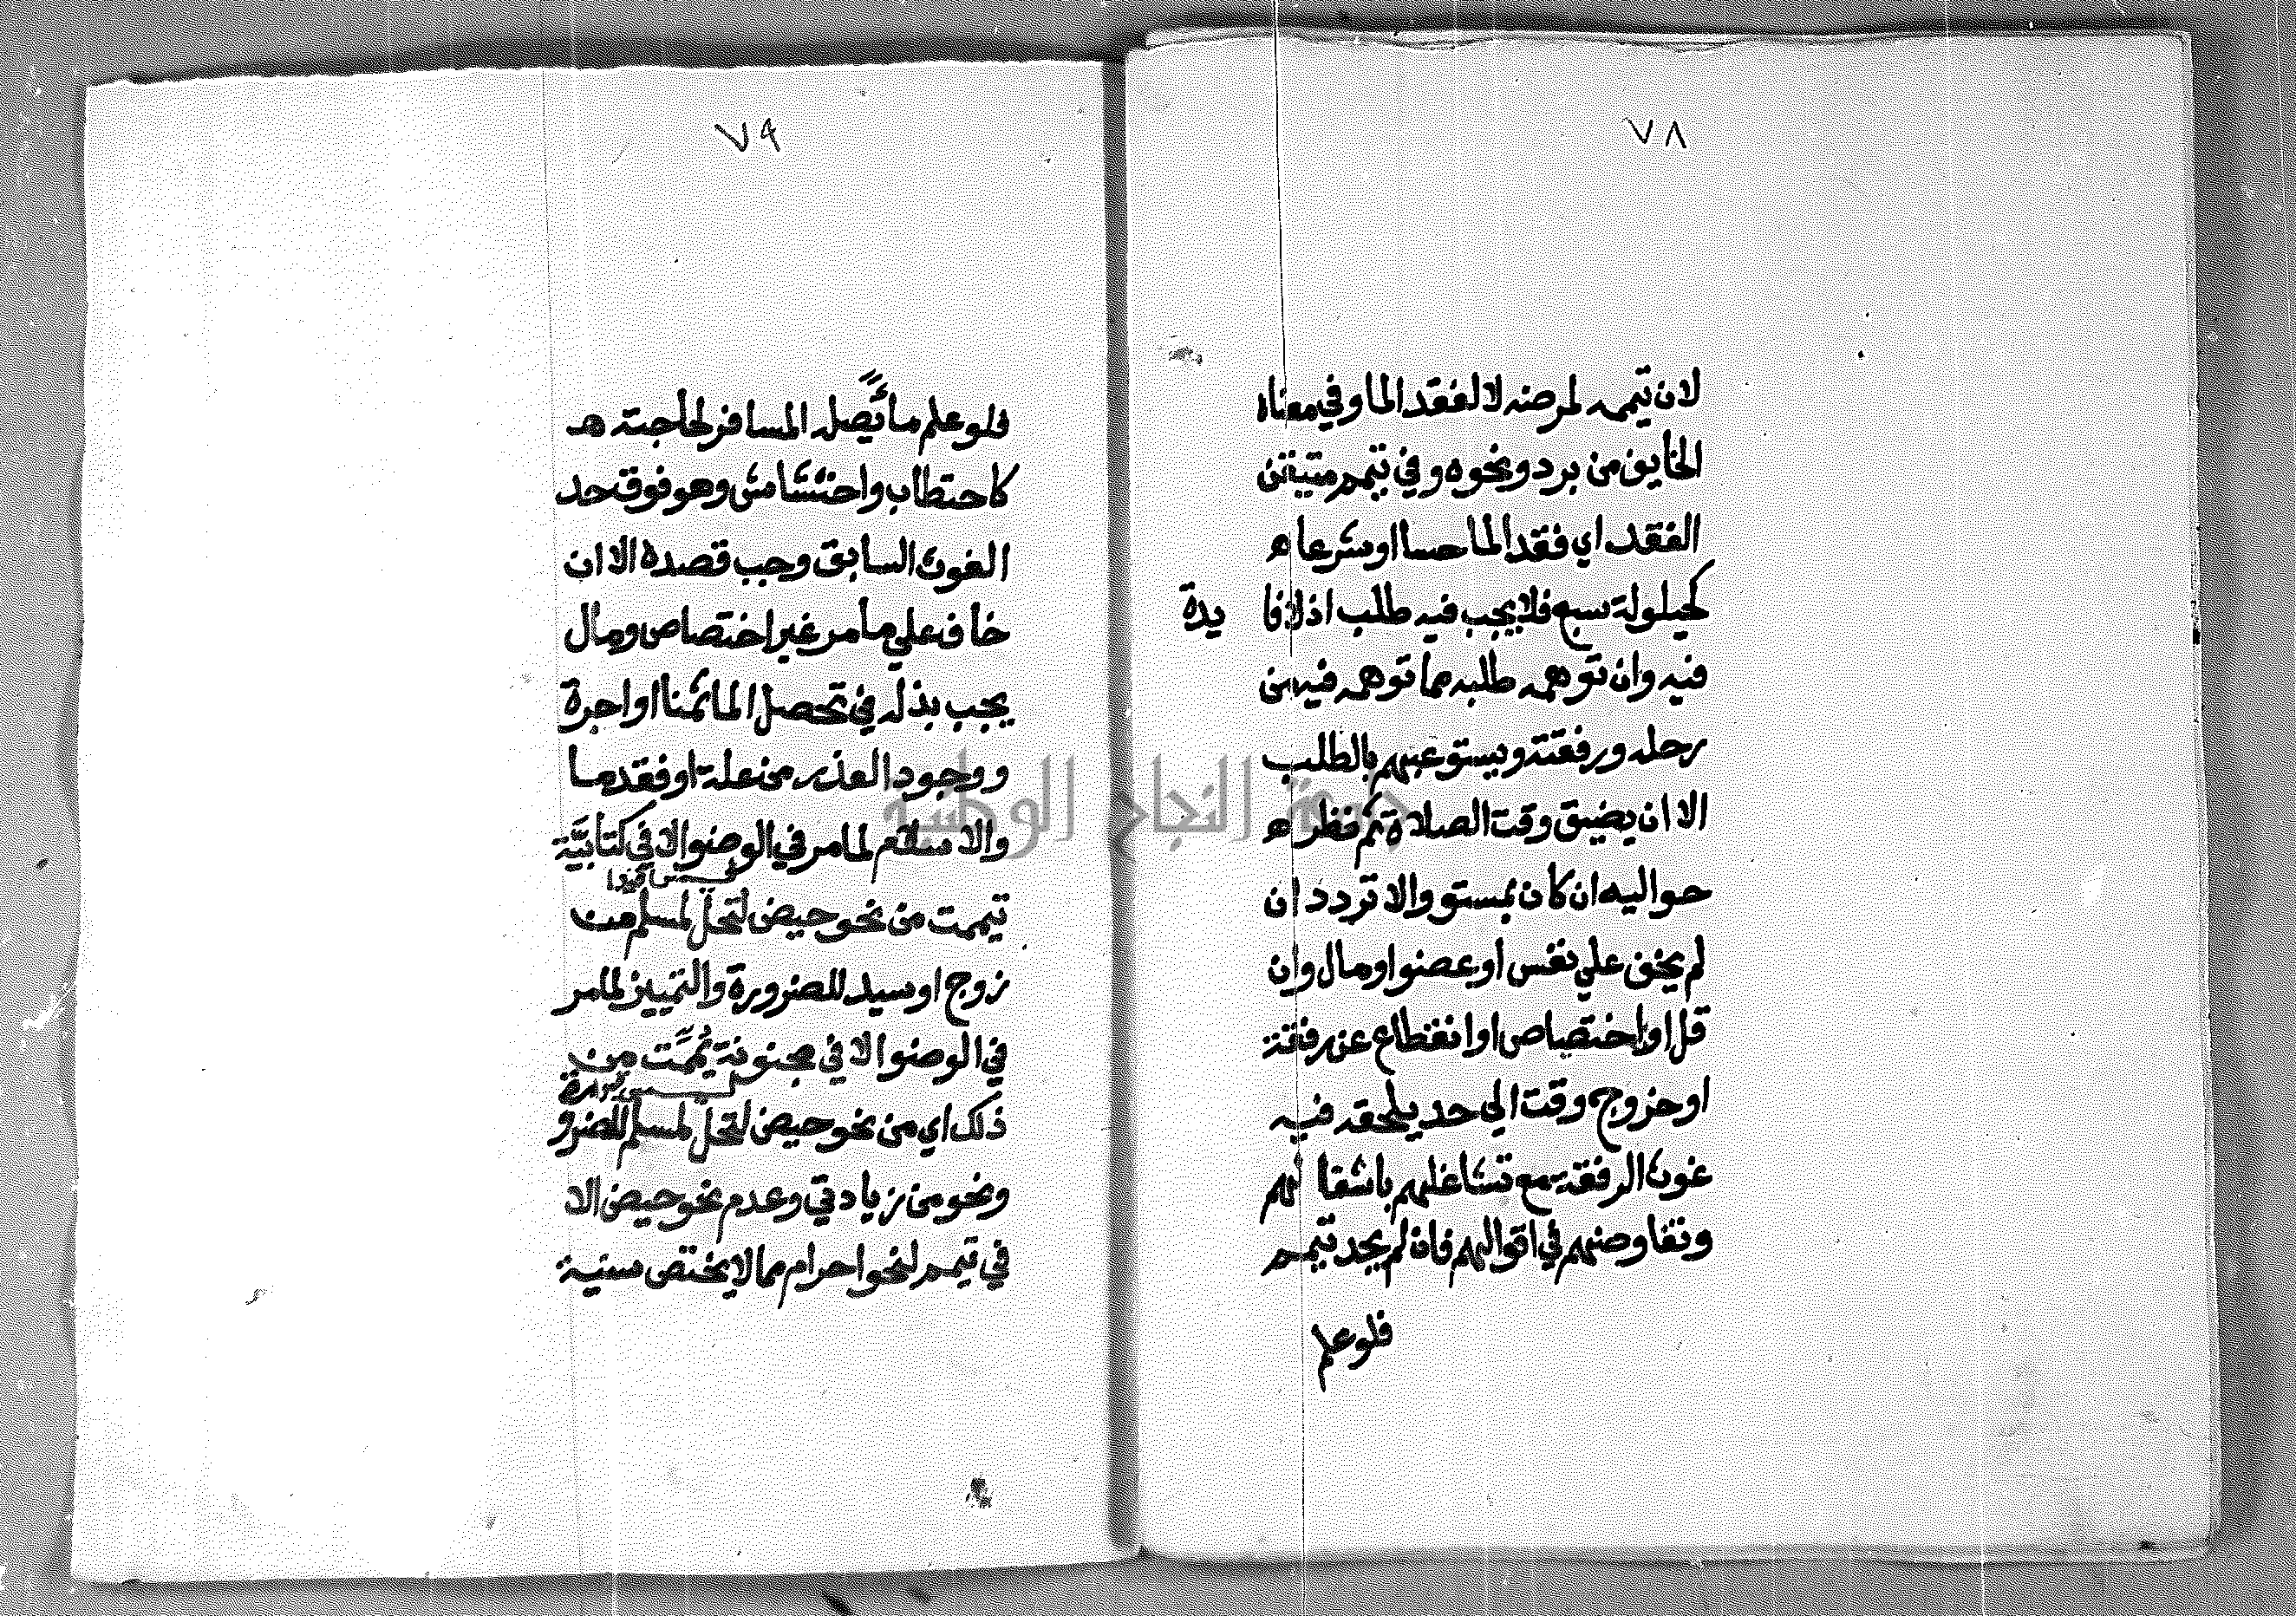 ٧٨
لان تيممه لمرضه لا لفقد الما وفي معناه
الخايف من برد ونحوه وفي تيمم متيقن
الفقد اي فقد الما حسا او شرعا ه
كحيلولة سبع فلا يجب فيه طلب اذ لا فا يدة
فيه وان توهمه طلبه مما توهمه فيه من
رحله ورفقته ويستوعبهم بالطلب
الا ان يضيق وقت الصلاة ثم نظر ه
حواليه ان كان بمستو والا تردد ان
لم يخف علي نفس او عضو او مال وان
قل او اختصاص او انقطاع عن رفقة
او خروج وقت الي حد يلحقه فيه
غوث الرفقة مع تشاغلهم باشغا لهم
وتفاوضهم في اقوالهم فان لم يجد تيمم
فلو علم
٧٩
فلو علم ما يصله المسافر لحاجته ه
كاحتطاب واحتشاش وهو فوق حد
الغوث السابق وجب قصده الا ان
خاف علي ما مر غير اختصاص ومال
يجب بذله في تحصل الما ثمنا او اجرة
ووجود العذر من علة او فقد ما
والاسلام لما مر في الوضو الا في كتابية
تيممت من نحو حيض لتحل لمسلم من
زوج او سيد للضرورة والتمييز لما مر
في الوضو الا في مجنونة يممت من
ذلك اي من نحو حيض لتحل لمسلم للضرو
ونحو من زيادتي وعدم نحو حيض الا
في تيمم لنحو احرام مما لا يختص
جامعة النجاح الوطنية